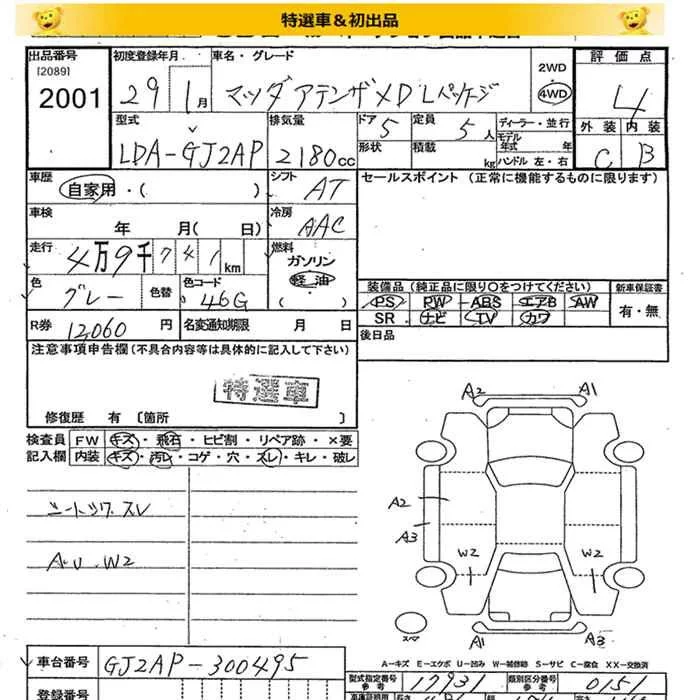 特選車&初出品
出品番号 初度登録年月 車名・グレード 評価点
[2089] 2WD
2001 29 1月 マツダ アテンザ XD Lパッケージ 4WD 4
型式 排気量 ドア 定員 ディーラー・並行 外装 内装
モデル年式 年
LDA-GJ2AP 2180cc 5 5人 C B
形状 積載 kg ハンドル 左・右
車歴 シフト セールスポイント (正常に機能するものに限ります)
自家用・( ) AT
車検 冷房
年 月( 日) AAC
走行 燃料
4万9千741km ガソリン
軽油
( )
色 色替 色コード 装備品 (純正品に限り○をつけてください) 新車保証書
グレー 46G PS PW ABS エアB AW 有・無
SR ナビ TV カワ
R券 12,060円 名変通知期限 月 日 後日品
注意事項申告欄 (不具合内容等は具体的に記入して下さい)
特選車
修復歴 有 [箇所 ]
検査員 FW キズ・飛石・ヒビ割・リペア跡・×要
記入欄 内装 キズ・汚レ・コゲ・穴・スレ・キレ・破レ
A2 A1
A2
A3
W2 W2
シートシワ スレ
A.U.W2
スペア A1 A3
A-キズ E-エクボ U-凹み W-補修跡 S-サビ C-腐食 XX-交換済
車台番号 GJ2AP-300495
型式指定番号 参考 17931 類別区分番号 参考 0151
登録番号